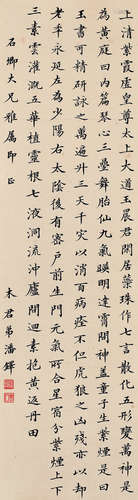 上清紫霞虛皇尊太上大道玉晨君閒居蕊珠作七言散化五形變萬神是
為黃庭曰內篇琴心三疊舞胎仙九氣暎明達霄間神蓋童子生紫煙是曰玉
書可精研詠之萬遍升三天千災以消百病痊不憚虎狼之凶殘亦以却
老年永延左為少陽右太陰後有密戶前生門元氣所合星宿分紫煙上下
三素雲灌溉五華植靈根七液洞流沖廬間迴素抱黃返丹田
石卿大兄雅屬即正
木君弟潘鐸